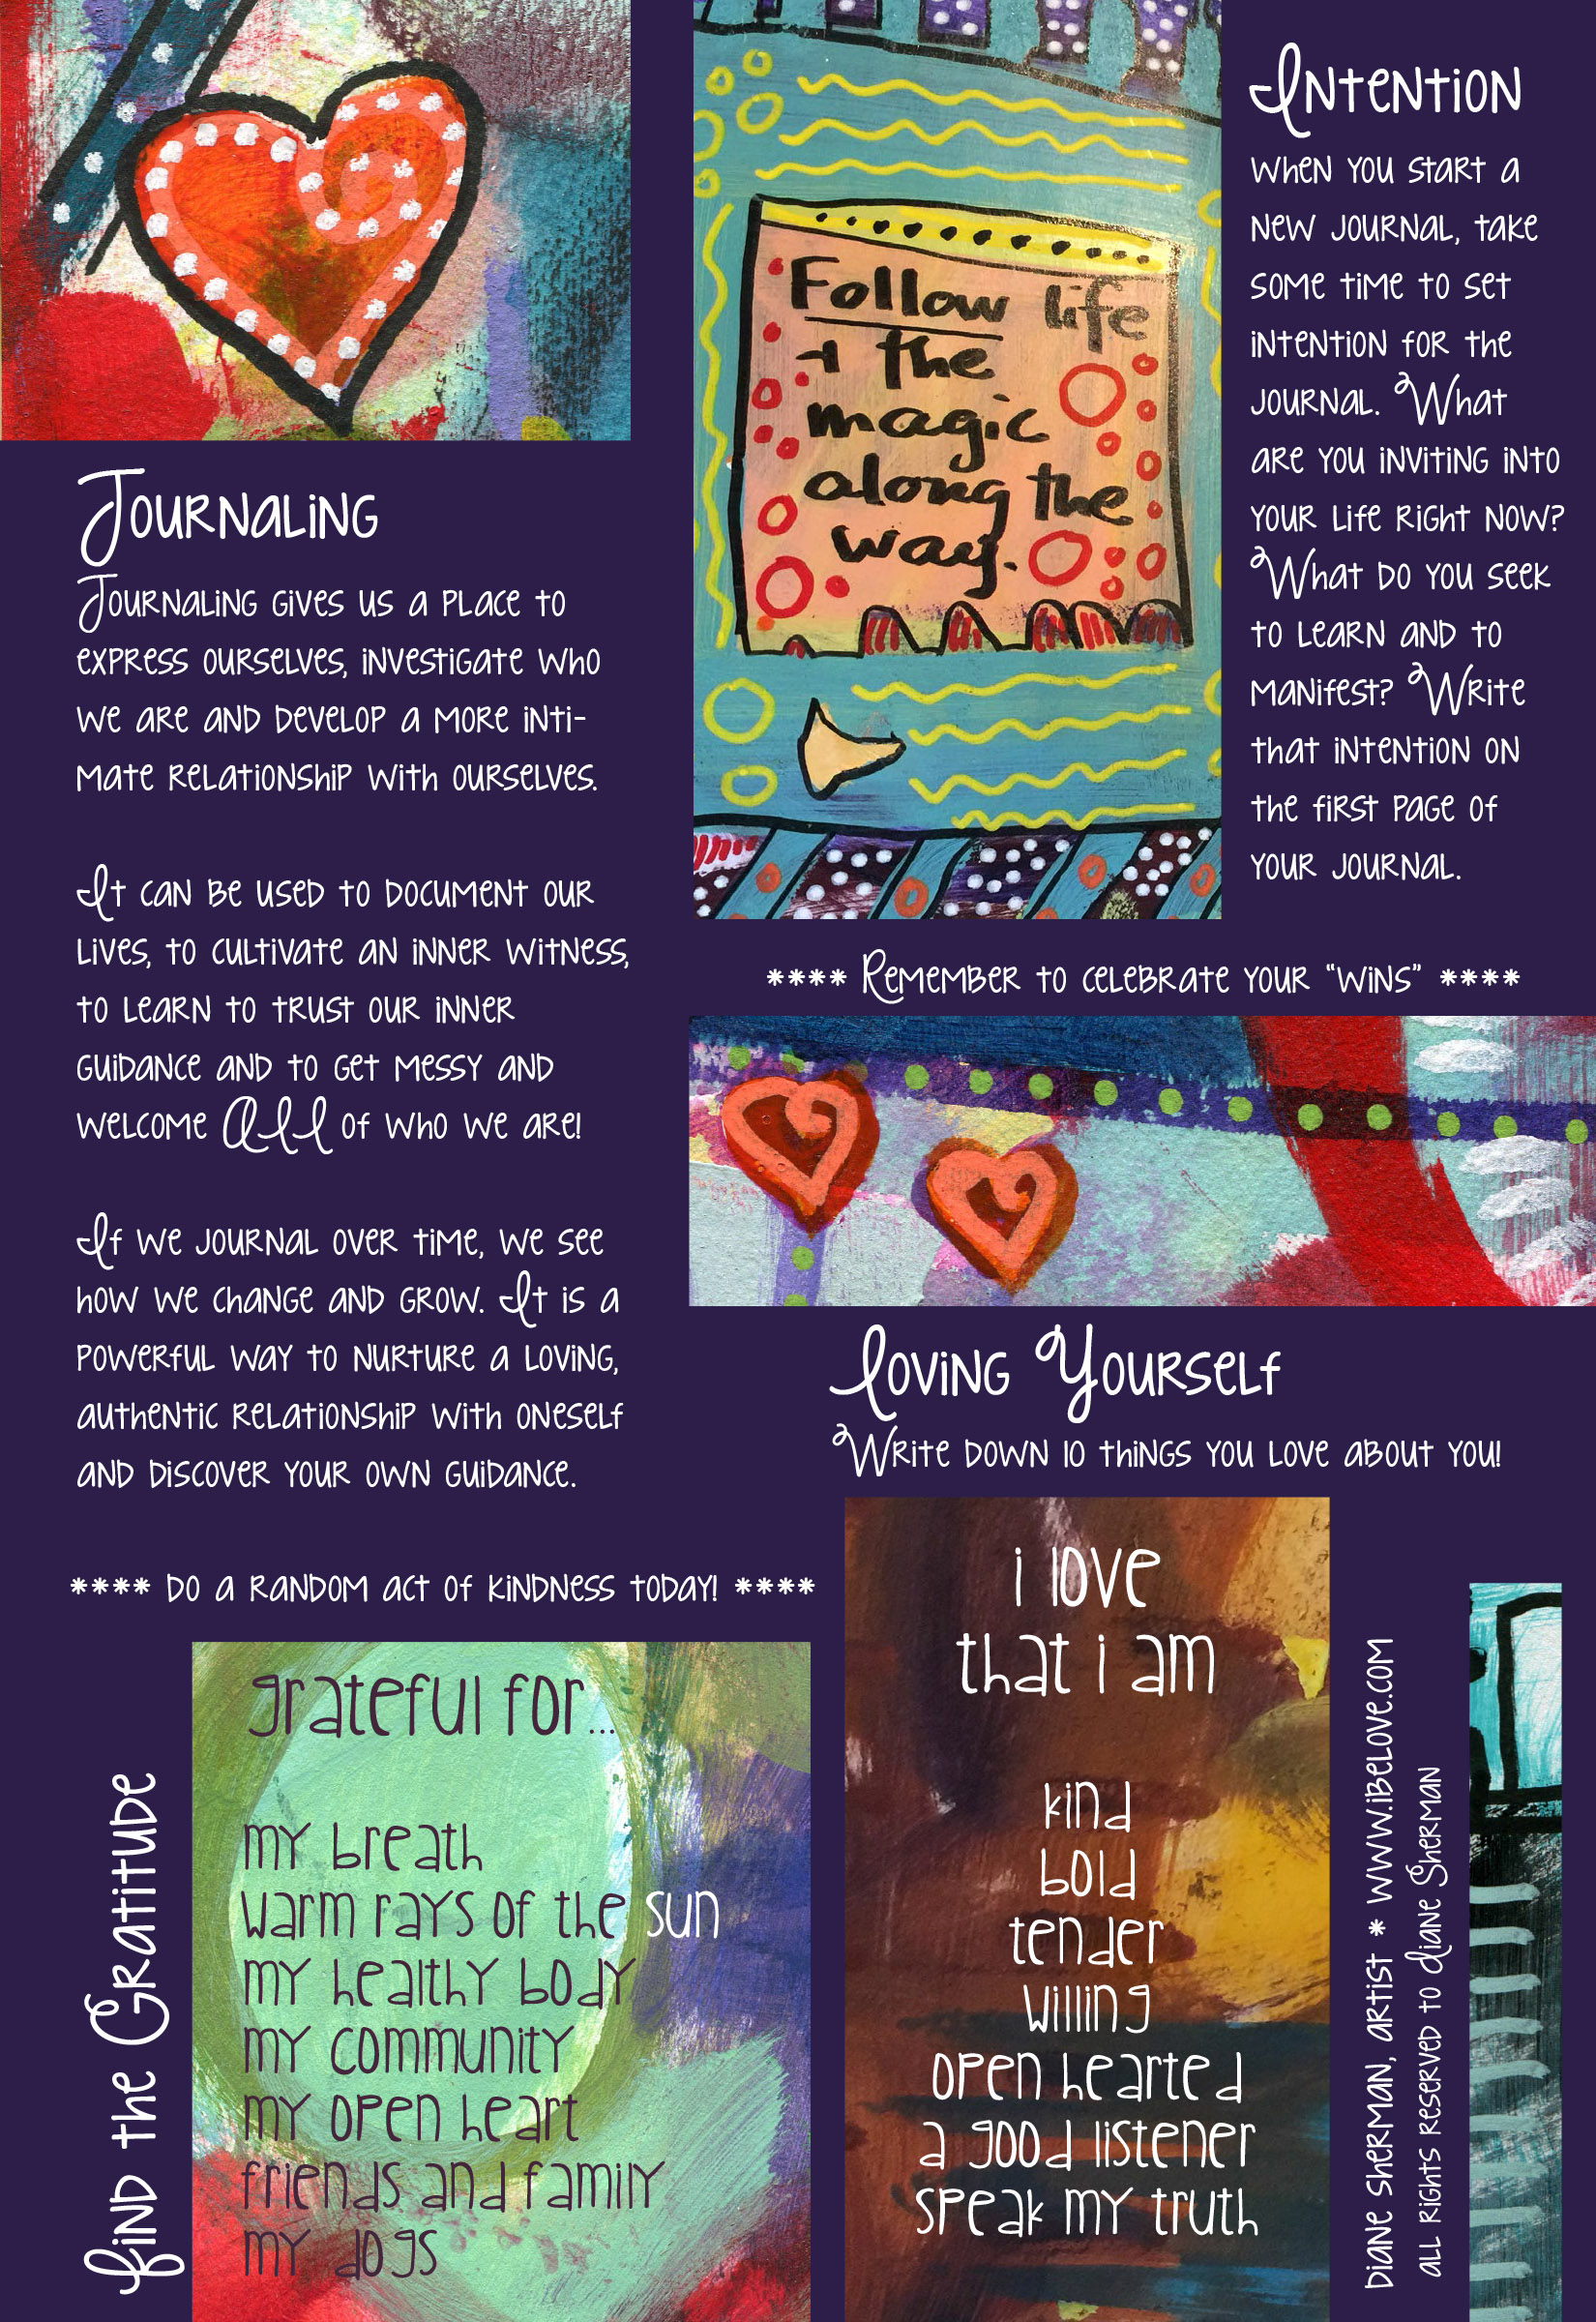 Journaling
Journaling gives us a place to
express ourselves, investigate who
we are and develop a more inti-
mate relationship with ourselves.
It can be used to document our
lives, to cultivate an inner witness,
to learn to trust our inner
guidance and to get messy and
welcome All of who we are!
If we journal over time, we see
how we change and grow. It is a
powerful way to nurture a loving,
authentic relationship with oneself
and discover your own guidance.
**** Do a random act of kindness today! ****
Find the Gratitude
grateful for...
my breath
warm rays of the sun
my healthy body
my community
my open heart
friends and family
my dogs
Follow life
+ the
magic
along the
way.
Intention
When you start a
new journal, take
some time to set
intention for the
journal. What
are you inviting into
your life right now?
What do you seek
to learn and to
manifest? Write
that intention on
the first page of
your journal.
**** Remember to celebrate your "wins" ****
Loving Yourself
Write down 10 things you love about you!
i love
that i am
kind
bold
tender
willing
open hearted
a good listener
speak my truth
Diane Sherman, artist * www.ibelove.com
all rights reserved to Diane Sherman